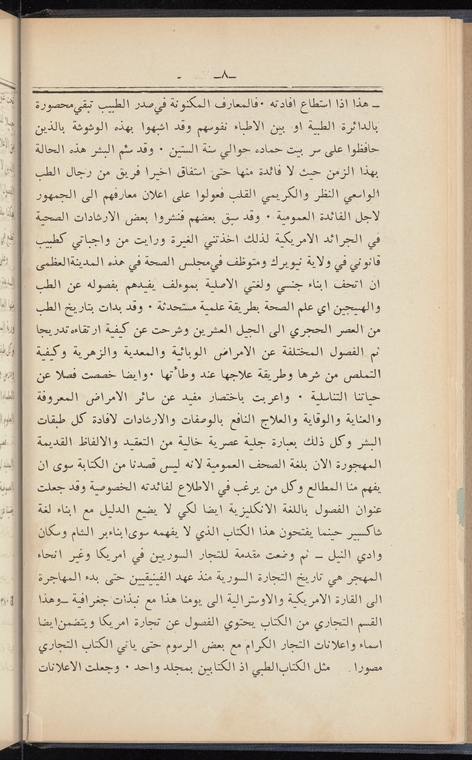 ـ٨ـ
ـ هذا اذا استطاع افادته ۰ فالمعارف المكنونة في صدر الطبيب تبقي محصورة
بالدائرة الطبية او بين الاطباء نفوسهم وقد اشبهوا بهذه الوشوثة بالذين
حافظوا على سر بيت حماده حوالي سنة الستين ۰ وقد سئم البشر هذه الحالة
بهذا الزمن حيث لا فائدة منها حتى استفاق اخيرا فريق من رجال الطب
الواسعي النظر والكريمي القلب فعولوا على اعلان معارفهم الى الجمهور
لاجل الفائدة العمومية ۰ وقد سبق بعضهم فنشروا بعض الارشادات الصحية
في الجرائد الامريكية لذلك اخذتني الغيرة ورايت من واجباتي كطبيب
قانوني في ولاية نيويرك ومتوظف في مجلس الصحة في هذه المدينة العظمى
ان اتحف ابناء جنسي ولغتي الاصلية بموءلف يفيدهم بفصوله عن الطب
والهيجين اي علم الصحة بطريقة علمية مستحدثة ۰ وقد بدات بتاريخ الطب
من العصر الحجري الى الجيل العشرين وشرحت عن كيفية ارتقاءه تدريجا
ثم الفصول المختلفة عن الامراض الوبائية والمعدية والزهرية وكيفية
التملص من شرها وطريقة علاجها عند وطأتها ۰ وايضا خصصت فصلا عن
حياتنا التناسلية ۰ واعربت باختصار مفيد عن سائر الامراض المعروفة
والعناية والوقاية والعلاج النافع بالوصفات والارشادات لافادة كل طبقات
البشر وكل ذلك بعبارة جلية عصرية خالية من التعقيد والالفاظ القديمة
المهجورة الان بلغة الصحف العمومية لانه ليس قصدنا من الكتابة سوى ان
يفهم منا المطالع وكل من يرغب في الاطلاع لفائدته الخصوصية وقد جعلت
عنوان الفصول باللغة الانكليزية ايضا لكي لا يضيع الدليل مع ابناء لغة
شاكسبير حينما يفتحون هذا الكتاب الذي لا يفهمه سوى ابناء بر الشام وسكان
وادي النيل ـ ثم وضعت مقدمة للتجار السوريين في امريكا وغير انحاء
المهجر هي تاريخ التجارة السورية منذ عهد الفينيقيين حتى بدء المهاجرة
الى القارة الامريكية والاوسترالية الى يومنا هذا مع نبذات جغرافية ـ وهذا
القسم التجاري من الكتاب يحتوي الفصول عن تجارة امريكا ويتضمن ايضا
اسماء واعلانات التجار الكرام مع بعض الرسوم حتى ياتي الكتاب التجاري
مصورا مثل الكتاب الطبي اذ الكتابين بمجلد واحد ۰ وجعلت الاعلانات